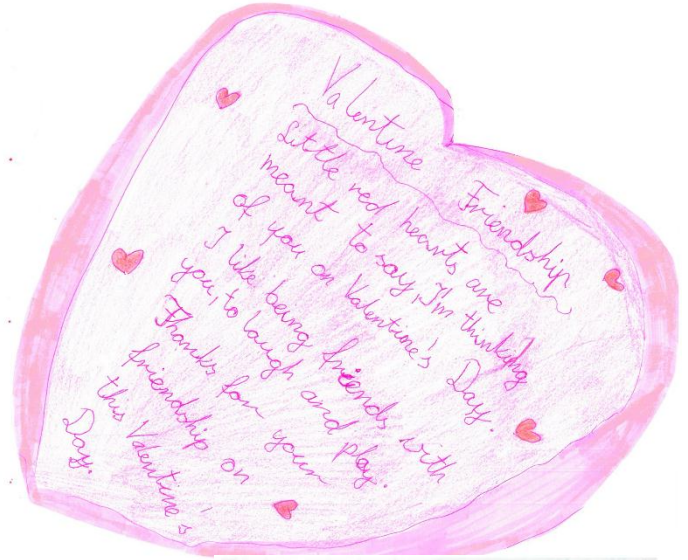 Valentine Friendship
Little red hearts are
meant to say, I'm thinking
of you on Valentine's Day.
I like being friends with
you, to laugh and play.
Thanks for your
friendship on
this Valentine's
Day.